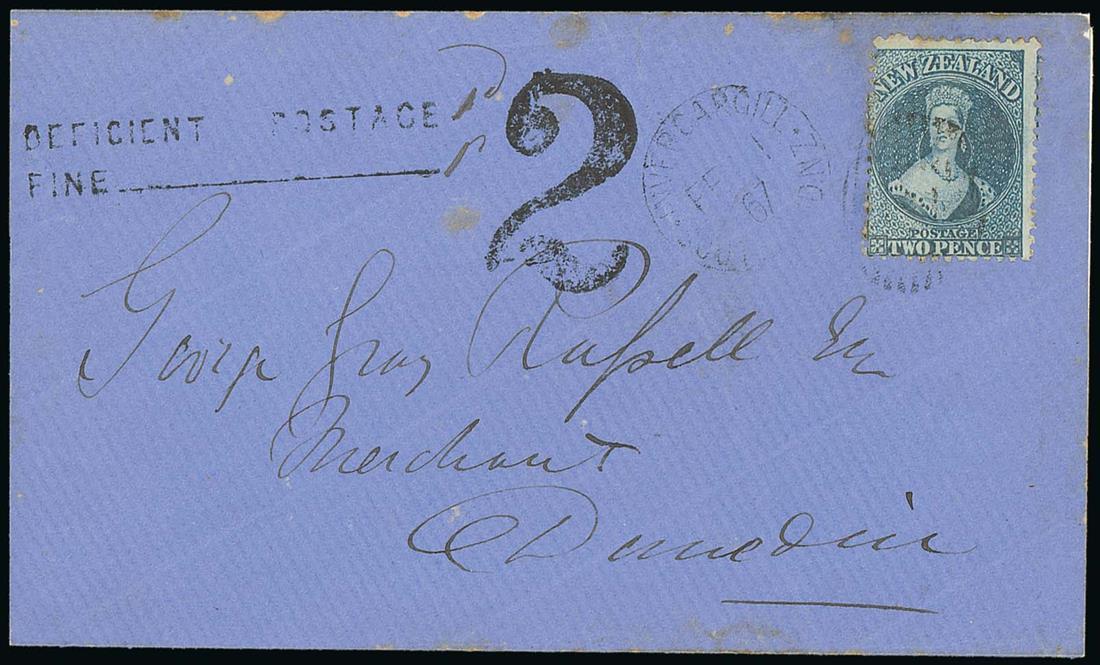 DEFICIENT POSTAGE 1d
FINE 1d
2
INVERCARGILL · ZNC
FE
67
NEW ZEALAND
POSTAGE
TWO PENCE
George Gray Russell Esq
Merchant
Dunedin